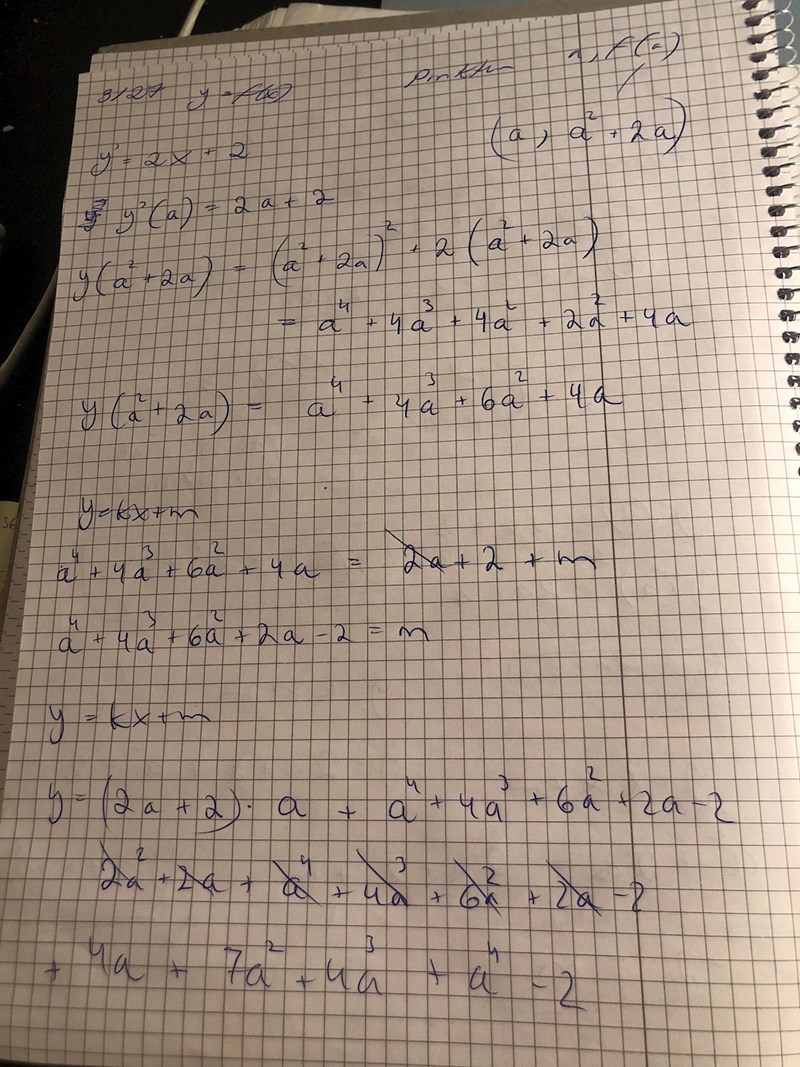 3127 y = f(x) punkten a, f(a)
(a, a² + 2a)
y' = 2x + 2
y'(a) = 2a + 2
y(a² + 2a) = (a² + 2a)² + 2(a² + 2a)
= a⁴ + 4a³ + 4a² + 2a² + 4a
y(a² + 2a) = a⁴ + 4a³ + 6a² + 4a
y = kx + m
a⁴ + 4a³ + 6a² + 4a = 2a + 2 + m
a⁴ + 4a³ + 6a² + 2a - 2 = m
y = kx + m
y = (2a + 2) · a + a⁴ + 4a³ + 6a² + 2a - 2
2a² + 2a + a⁴ + 4a³ + 6a² + 2a - 2
+ 4a + 7a² + 4a³ + a⁴ - 2